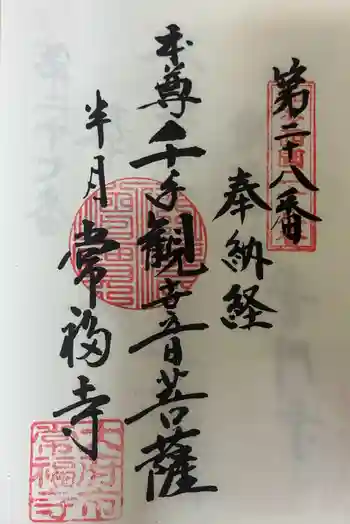 第二十八番
奉納経
本尊千手観世音菩薩
半月常福寺